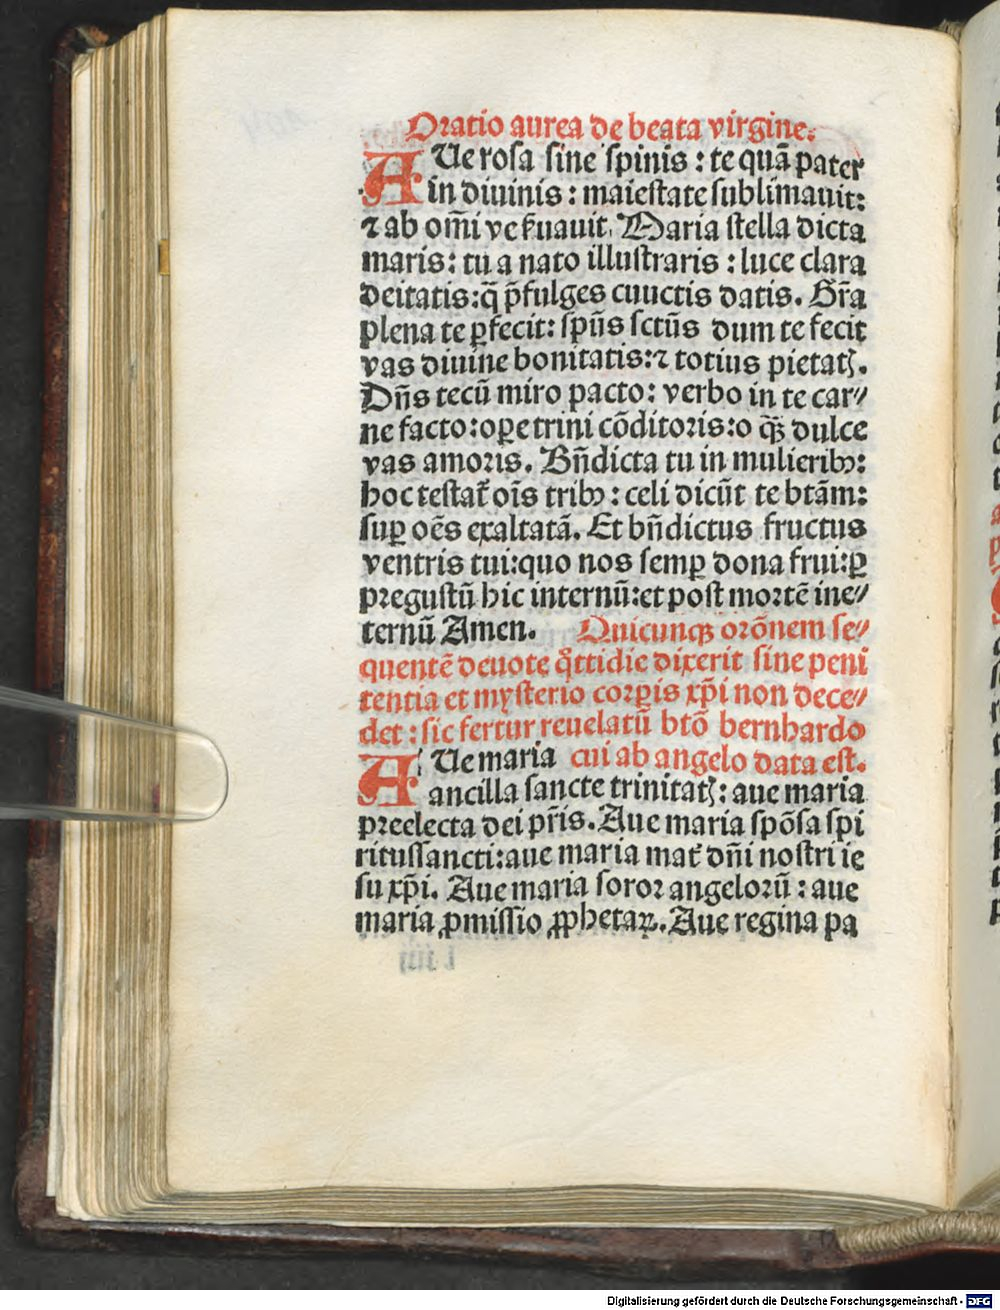 Oratio aurea de beata virgine.
AUe rosa sine spinis : te quã pater
in diuinis : maiestate sublimauit:
⁊ ab om̃i ve seruauit. Maria stella dicta
maris: tu a nato illustraris : luce clara
deitatis:q̃ p̃fulges cuuctis datis. Gr̃a
plena te ꝑfecit: spũs sctũs dum te fecit
vas diuine bonitatis:⁊ totius pietatꝭ.
Dñs tecũ miro pacto: verbo in te car⸗
ne facto:oꝑe trini cõditoris:o qꝫ dulce
vas amoris. Bñdicta tu in mulieribꝰ:
hoc testat̃ oĩs tribꝰ : celi dicũt te btãm:
suꝑ oẽs exaltatã. Et bñdictus fructus
ventris tui:quo nos semꝑ dona frui:ꝑ
pregustũ hic internũ:et post mortẽ ine⸗
ternũ Amen. Quicunqꝫ orõnem se⸗
quentẽ deuote q̊ttidie dixerit sine peni
tentia et mysterio corꝑis xp̃i non dece⸗
det : sic fertur reuelatũ btõ bernhardo
AUe maria cui ab angelo data est.
ancilla sancte trinitatꝭ: aue maria
preelecta dei pr̃is. Aue maria spõsa spi
ritussancti:aue maria mat̃ dñi nostri ie
su xp̃i. Aue maria soror angelorũ : aue
maria ꝓmissio ꝓphetaꝝ. Aue regina pa
Digitalisierung gefördert durch die Deutsche Forschungsgemeinschaft - DFG